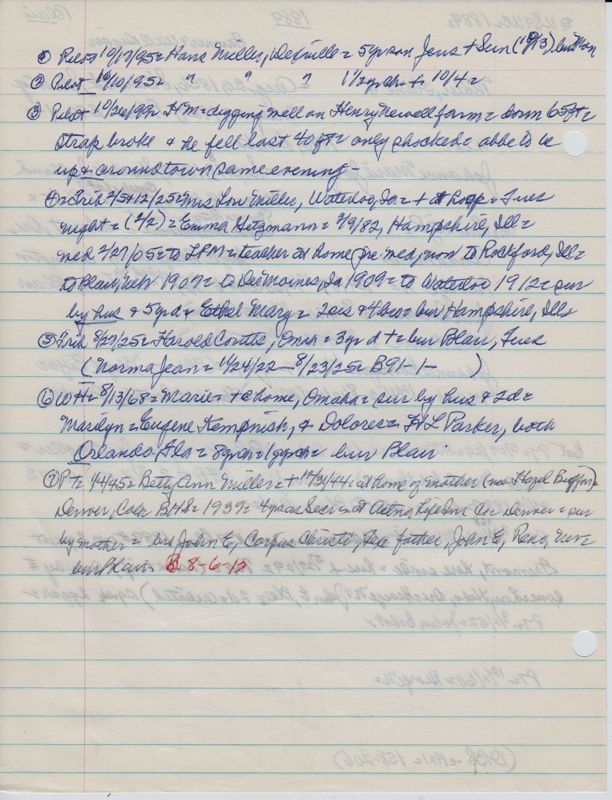 ① Pilot 10/17/95 = Hans Miller, Dexville = 5yr son Jens + Sun (10/13) =
② Pilot 10/10/95 = " " " 1½ yr ch + 10/4 =
③ Pilot 10/26/99 = HM = digging well on Henry Newell farm = down 65 ft =
strap broke & he fell last 40 ft = only shocked = able to be
up & around town same evening -
= 2/5+12/25 = Mrs Lou Miller, Waterloo, Ia = + at hosp = Tues
night = (2/2) = Emma Hitzmann = 2/9/82, Hampshire, Ill =
med 2/27/05 = to LPM = teacher at home pre med, to Rockford, Ill =
to Blair, Neb 1907 = to Des Moines, Ia 1909 = to Waterloo 1912 = sur
by hus & 5yr d = Ethel Mary = 2sis & 4bros = bur Hampshire, Ills
⑤ 8/27/25 = Harold = 3yr d + = bur Blair, Tues
(Norma Jean = 11/24/22 - 8/23/25 = B91-1- )
⑥ WH = 8/13/68 = Marie = + @ home, Omaha = sur by hus & 2d =
Marilyn = Eugene Kempnish, & Dolores = HL Parker, both
Orlando Fla = 8grch = 1ggrch = bur Blair
⑦ PT = 1/4/45 = Betty Ann Miller = + 12/31/44 = at home of mother (now Hazel )
Denver, Colo BHS = 1939 = 4yrs as Secr = at Aetna Life Ins Co Denver = sur
by mother = bro John E, Corpus Christi, Tex father, John E, Reno, Nev =
bur Blair 8-6-12